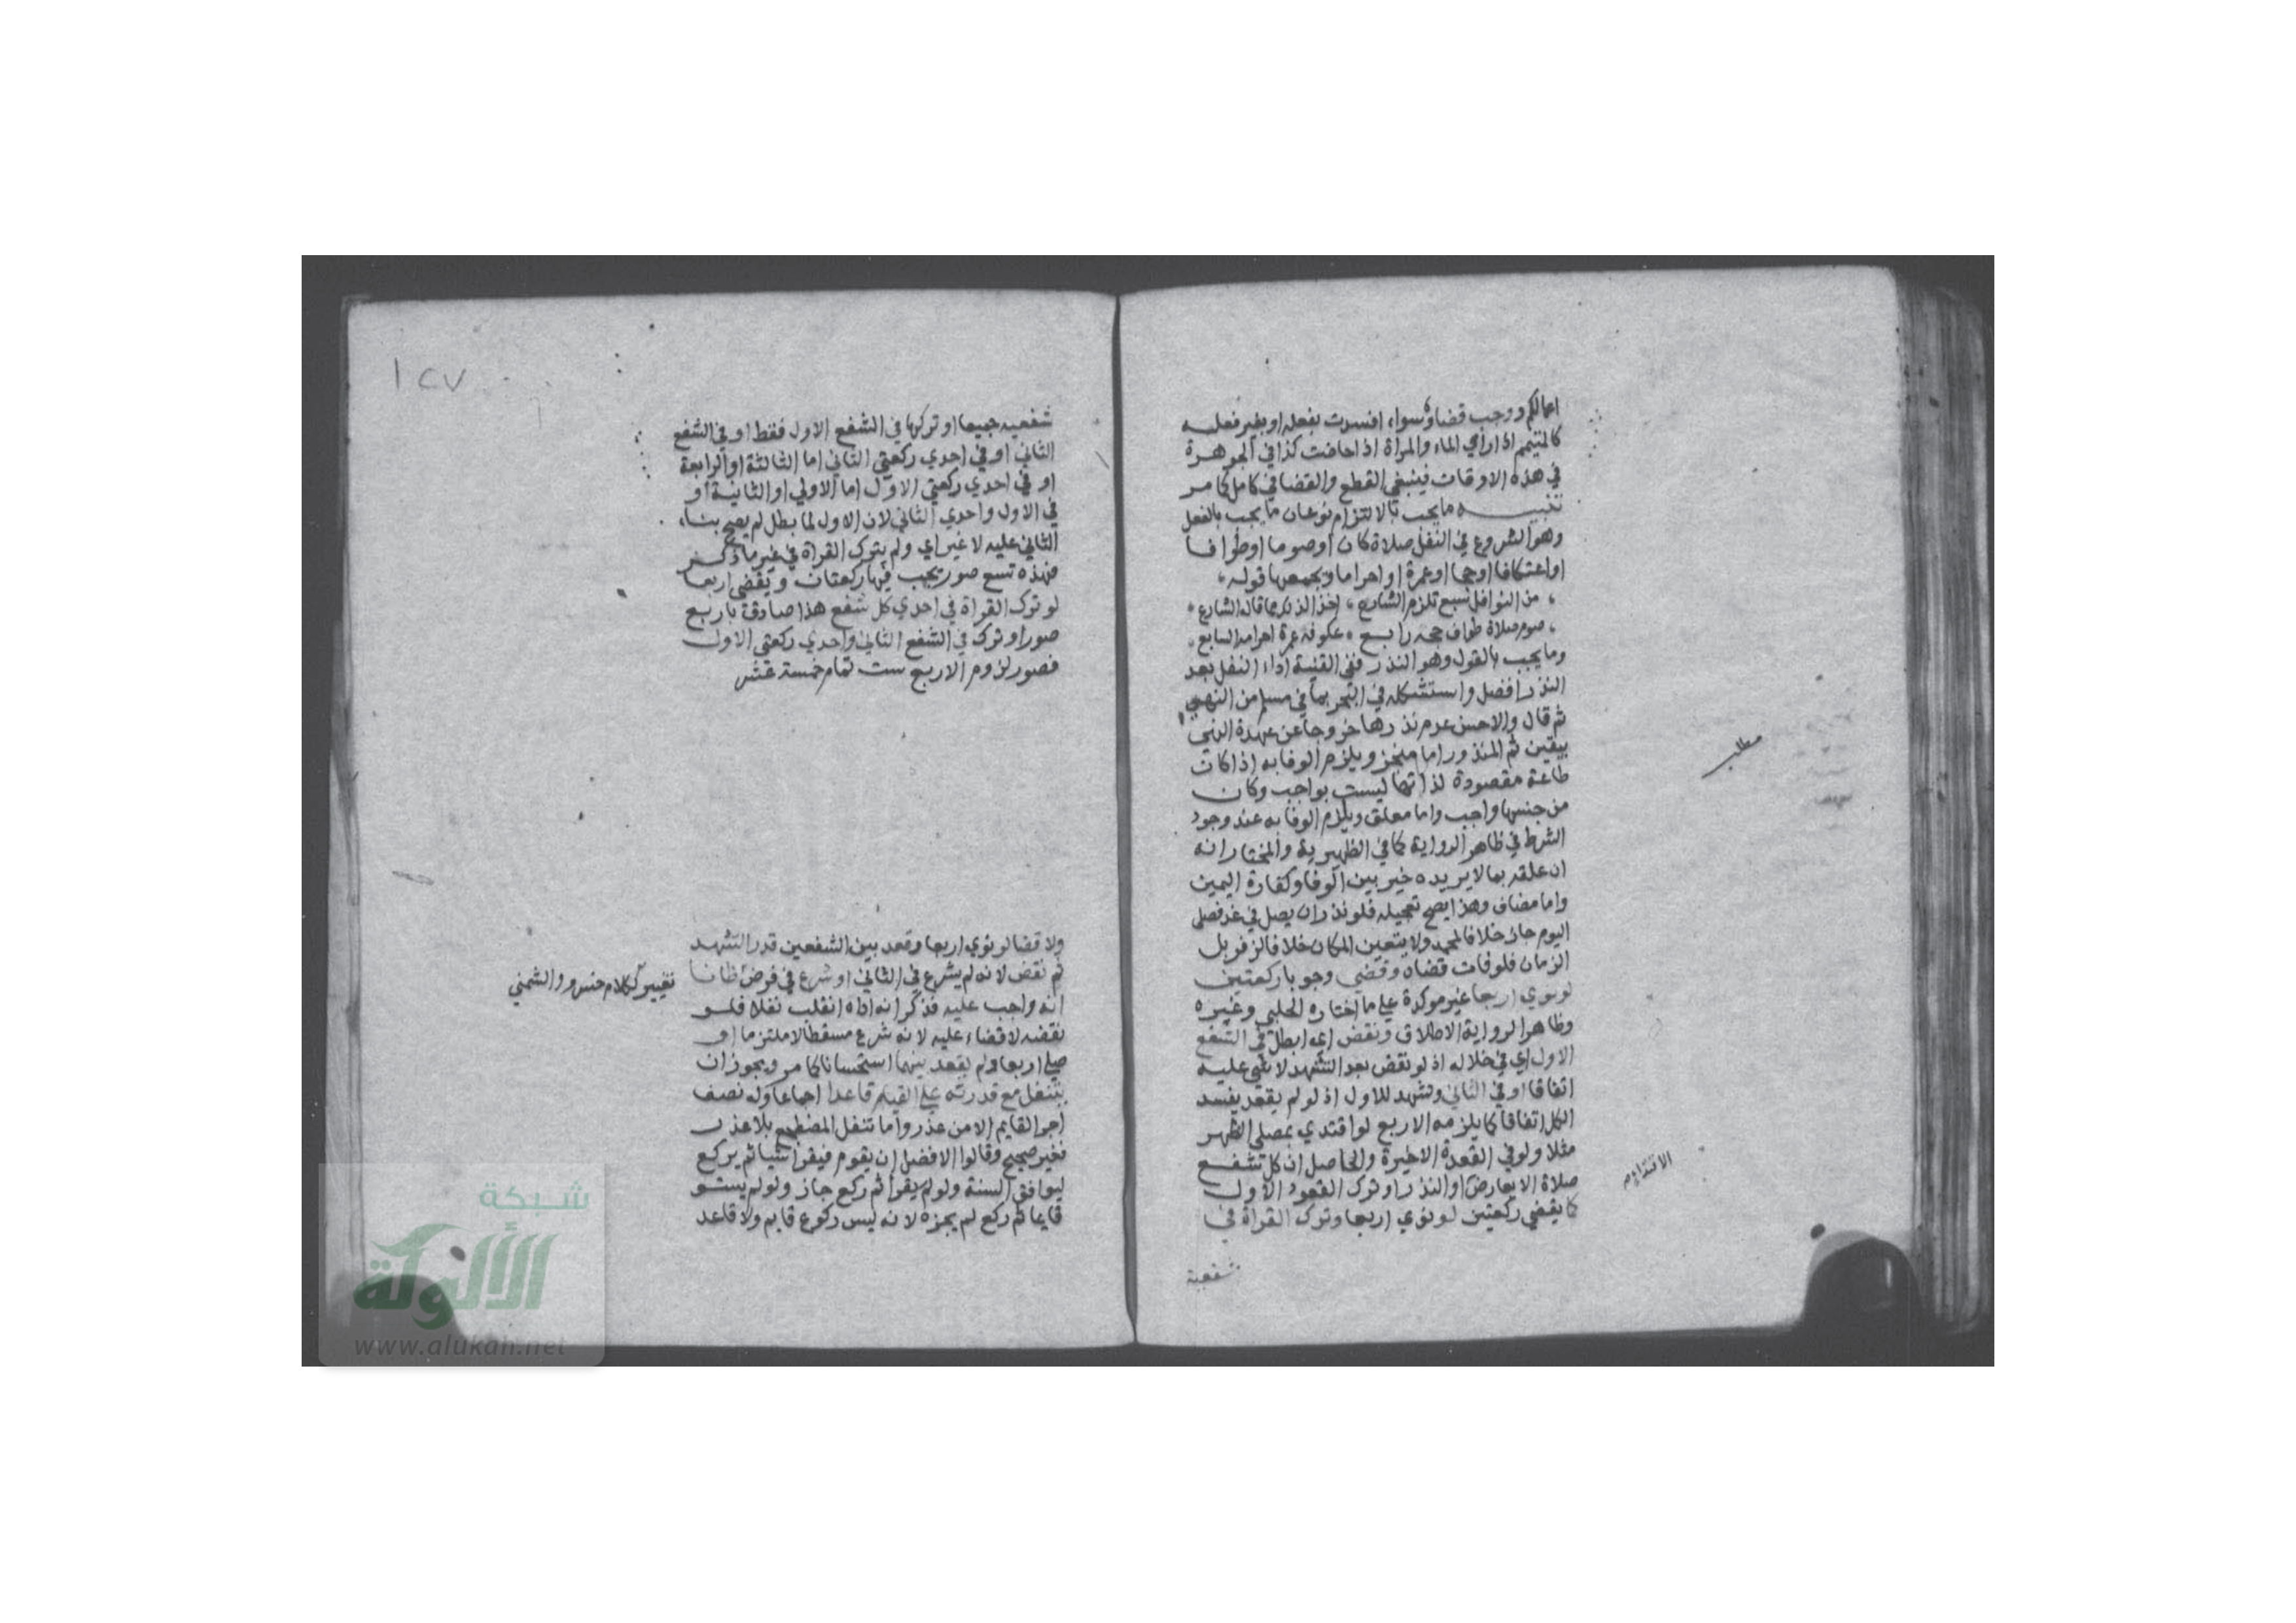 اعمالكم ووجب قضاؤه سواء افسدت بفعله او بغير فعله
كالمتيمم اذا راي الماء والمراة اذا حاضت كذا في الجوهرة
في هذه الاوقات فينبغي القطع والقضا في كامل كما مر
تنبيه ما يجب بالالتزام نوعان ما يجب بالفعل
وهو الشروع في النفل صلاة كان او صوما او طوافا
او اعتكافا او حجا او عمرة او احراما ويجمعها قوله
من النوافل سبع تلزم الشارع اخذا لذلك مما قاله الشارع
صوم صلاة طواف حجه رابع عكوفه عمرة احرامه السابع
وما يجب بالقول وهو النذر ففي القنية اداء النفل بعد
النذر افضل واستشكله في البحر بما في مسلم من النهي
ثم قال والاحسن عدم نذرها خروجا عن عهدة النهي
بيقين ثم المنذور اما منجز ويلزم الوفا به اذا كان
طاعة مقصودة لذاتها ليست بواجب وكان
من جنسها واجب واما معلق ويلزم الوفا به عند وجود
الشرط في ظاهر الرواية كما في الظهيرية والمختار انه
ان علقه بما لا يريده خير بين الوفا وكفارة اليمين
واما مضاف وهذا يصح تعجيله فلو نذر ان يصل في غد فصلى
اليوم جاز خلافا لمحمد ولا يتعين المكان خلافا لزفر بل
الزمان فلو فات قضاه وقضي وجوبا ركعتين
لو نوي اربعا غير موكدة علي ما اختاره الحلبي وغيره
وظاهر الرواية الاطلاق ونقض اي ابطل في الشفع
الاول اي في خلاله اذ لو نقض بعد التشهد لا شي عليه
اتفاقا او في الثاني وتشهد للاول اذ لو لم يقعد يفسد
الكل اتفاقا كما يلزمه الاربع لو اقتدي بمصلي الظهر
مثلا ولو في القعدة الاخيرة والحاصل ان كل شفع
صلاة الا بعارض او النذر او ترك القعود الاول
كما يقضي ركعتين لو نوي اربعا وترك القراة في
شفعيه
مطلب
١٢٧
شفعيه جميعا او تركها في الشفع الاول فقط او في الشفع
الثاني او في احدي ركعتي الثاني اما الثالثة او الرابعة
او في احدي ركعتي الاول اما الاولي او الثانية او
في الاول واحدي الثاني لان الاول لما بطل لم يصح بناء
الثاني عليه لا غير اي ولم يترك القراة في غير ما ذكر
فهذه تسع صور يجب فيها ركعتان ويقضي اربعا
لو ترك القراة في احدي كل شفع هذا صادق باربع
صور او ترك في الشفع الثاني واحدي ركعتي الاول
فصور لزوم الاربع ست تمام خمسة عشر
ولا قضا لو نوي اربعا وقعد بين الشفعين قدر التشهد
ثم نقض لانه لم يشرع في الثاني او شرع في فرض ظانا
انه واجب عليه فذكر انه اداه انقلب نفلا فلو
نقضه لا قضاء عليه لانه شرع مسقطا لا ملتزما او
صلي اربعا ولم يقعد بينهما استحسانا كما مر ويجوز ان
يتنفل مع قدرته علي القيام قاعدا اجماعا وله نصف
اجر القايم الا من عذر واما تنفل المضطجع بلا عذر
فغير صحيح وقالوا الافضل ان يقوم فيقرا شيا ثم يركع
ليوافق السنة ولو لم يقرا ثم ركع جاز ولو لم يستو
قايما ثم ركع لم يجزه لانه ليس ركوع قايم ولا قاعد
تغيير لكلام والشمني
شبكة
الألوكة
www.alukah.net